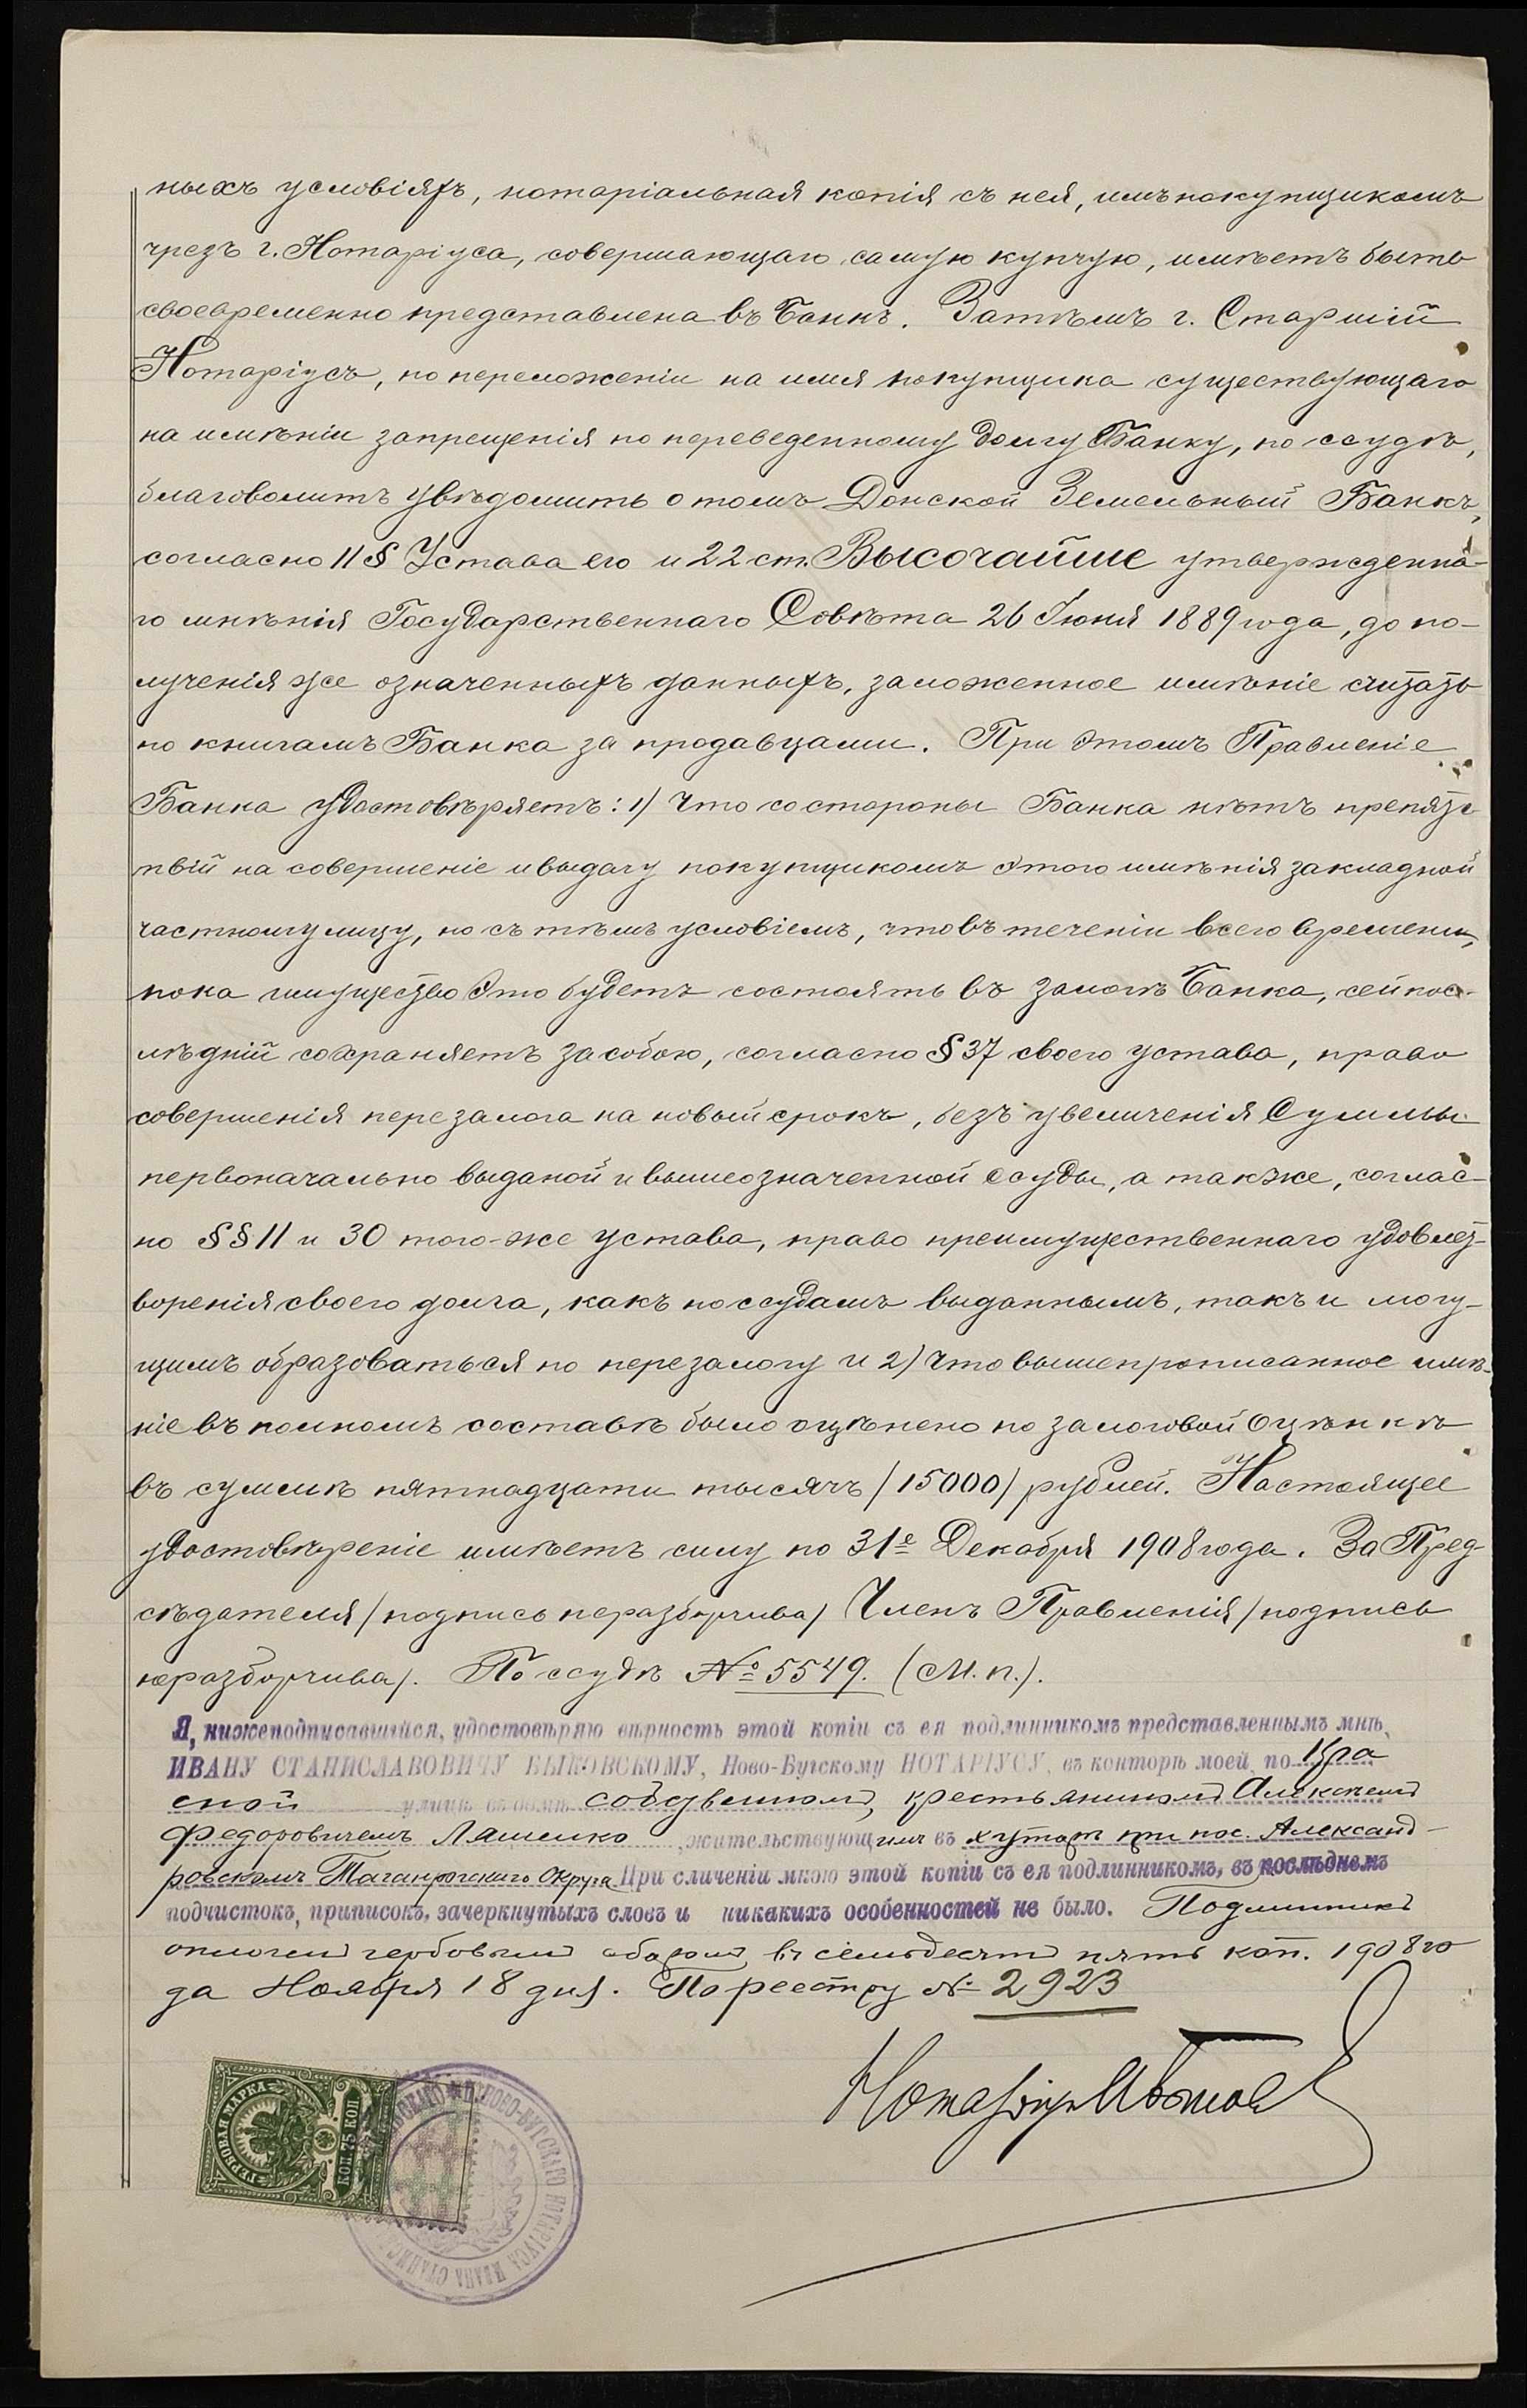 ныхъ условіяхъ, нотаріальная копія съ нея, имъ покупщикомъ
чрезъ г. Нотаріуса, совершающаго самую купчую, имѣетъ быть
своевременно представлена въ Банкъ. Затѣмъ г. Старшій
Нотаріусъ, по переложеніи на имя покупщика существующаго
на имѣніи запрещенія по переведенному долгу Банку, по ссудѣ,
благоволитъ увѣдомить о томъ Донской Земельный Банкъ,
согласно 11 § Устава его и 22 ст. Высочайше утвержденна-
го мнѣнія Государственнаго Совѣта 26 Іюня 1889 года, до по-
лученія же означенныхъ данныхъ, заложенное имѣніе считать
по книгамъ Банка за продавцами. При этомъ Правленіе
Банка удостовѣряетъ: 1) Что со стороны Банка нѣтъ препятс
твій на совершеніе и выдачу покупщикомъ этого имѣнія закладной
частному лицу, но съ тѣмъ условіемъ, что въ теченіи всего времени,
пока имущество это будетъ состоять въ залогѣ Банка, сей пос-
лѣдній сохраняетъ за собою, согласно § 37 своего устава, право
совершенія перезалога на новый срокъ, безъ увеличенія Суммы
первоначально выданой и вышеозначенной ссуды, а также, соглас-
но §§ 11 и 30 того-же устава, право преимущественнаго удовлет-
воренія своего долга, какъ по ссудамъ выданнымъ, такъ и могу-
щимъ образоваться по перезалогу и 2) Что вышепрописанное имѣ-
ніе въ полномъ составѣ было оцѣнено по залоговой оцѣнкѣ
въ суммѣ пятнадцати тысячъ /15000/ рублей. Настоящее
удостовѣреніе имѣетъ силу по 31е Декабря 1908 года. За Пред-
сѣдателя /подпись неразборчива/ Членъ Правленія /подпись
неразборчива/. По ссудѣ № 5549. (М.п.).
Я, нижеподписавшійся, удостовѣряю вѣрность этой копіи съ ея подлинникомъ представленнымъ мнѣ,
ИВАНУ СТАНИСЛАВОВИЧУ БЫКОВСКОМУ, Ново-Бугскому НОТАРІУСУ, въ конторѣ моей, по
ской улицѣ въ домѣ собственномъ, крестьяниномъ Алексѣемъ
Федоровичемъ Ляшенко, жительствующимъ въ хуторѣ при пос. Александ-
ровскомъ Таганрогскаго Округа. При сличеніи мною этой копіи съ ея подлинникомъ, въ послѣднемъ
подчистокъ, приписокъ, зачеркнутыхъ словъ и никакихъ особенностей не было. Подлинникъ
оплоченъ гербовымъ сборомъ въ семьдесятъ пять коп. 1908 го
да Ноября 18 дня. По реестру № 2923
Нотаріусъ
ГЕРБОВАЯ МАРКА
КОП. 75 КОП.
НОВО-БУГСКАГО НОТАРІУСА ИВАНА